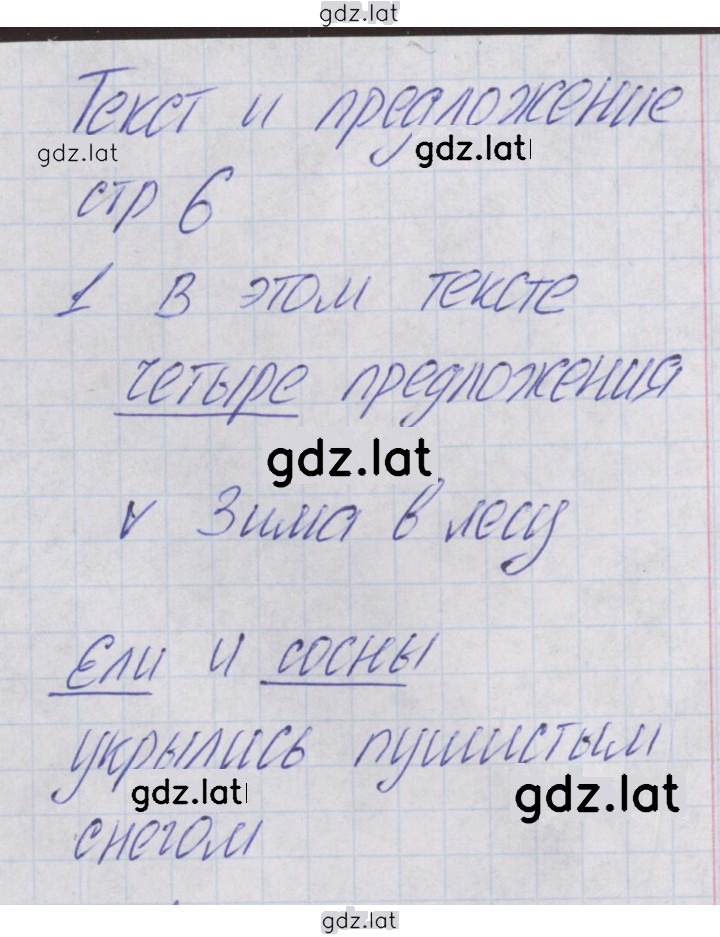 gdz.lat
Текст и предложение
gdz.lat gdz.lat
стр 6
1 В этом тексте
четыре предложения
gdz.lat
v Зима в лесу
Ели и сосны
укрылись пушистым
gdz.lat gdz.lat
снегом
gdz.lat